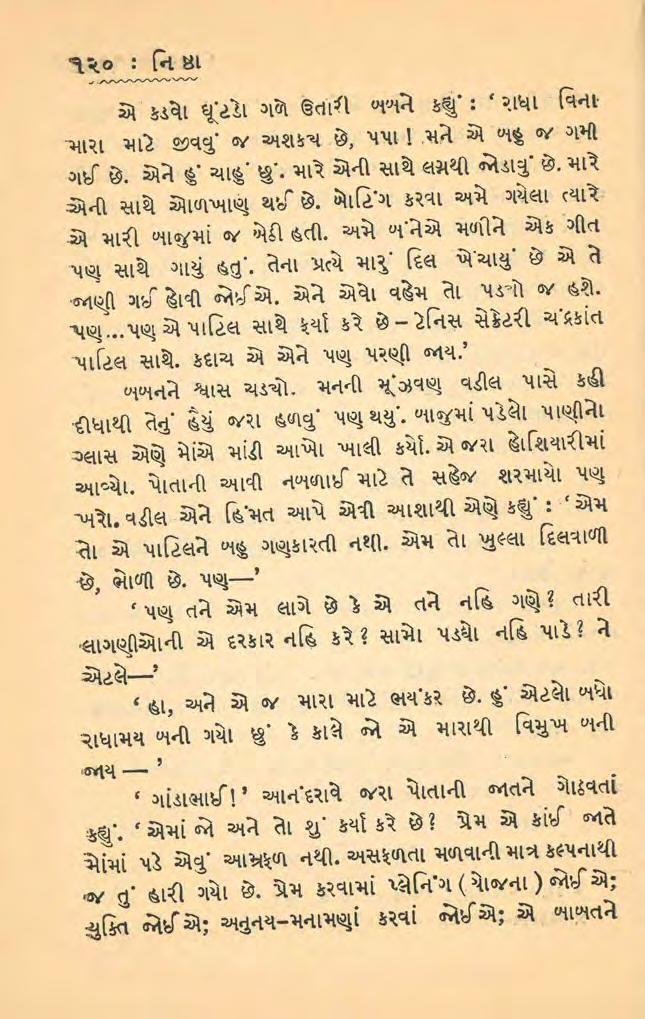 ૧૨૦ : નિષ્ઠા
એ કડવો ઘૂંટડો ગળે ઉતારી બબને કહ્યું : ‘ રાધા વિના
મારા માટે જીવવું જ અશક્ય છે, પપા ! મને એ બહુ જ ગમી
ગઈ છે. એને હું ચાહું છું. મારે એની સાથે લગ્નથી જોડાવું છે. મારે
એની સાથે ઓળખાણ થઈ છે. બોટિંગ કરવા અમે ગયેલા ત્યારે
એ મારી બાજુમાં જ બેઠી હતી. અમે બંનેએ મળીને એક ગીત
પણ સાથે ગાયું હતું. તેના પ્રત્યે મારું દિલ ખેંચાયું છે એ તે
જાણી ગઈ હોવી જોઈએ. એને એવો વહેમ તો પડ્યો જ હશે.
પણ...પણ એ પાટિલ સાથે ફર્યા કરે છે – ટેનિસ સેક્રેટરી ચંદ્રકાંત
પાટિલ સાથે. કદાચ એ એને પણ પરણી જાય.’
બબનને શ્વાસ ચડ્યો. મનની મૂંઝવણ વડીલ પાસે કહી
દીધાથી તેનું હૈયું જરા હળવું પણ થયું. બાજુમાં પડેલો પાણીનો
ગ્લાસ એણે મોંએ માંડી આખો ખાલી કર્યો. એ જરા હોશિયારીમાં
આવ્યો. પોતાની આવી નબળાઈ માટે તે સહેજ શરમાયો પણ
ખરો. વડીલ એને હિંમત આપે એવી આશાથી એણે કહ્યું : ‘ એમ
તો એ પાટિલને બહુ ગણકારતી નથી. એમ તો ખુલ્લા દિલવાળી
છે, ભોળી છે. પણ—’
‘ પણ તને એમ લાગે છે કે એ તને નહિ ગણે ? તારી
લાગણીઓની એ દરકાર નહિ કરે ? સામો પડઘો નહિ પાડે ? ને
એટલે—’
‘ હા, અને એ જ મારા માટે ભયંકર છે. હું એટલો બધો
રાધામય બની ગયો છું કે કાલે જો એ મારાથી વિમુખ બની
જાય — ’
‘ ગાંડાભાઈ ! ’ આનંદરાવે જરા પોતાની જાતને ગોઠવતાં
કહ્યું. ‘ એમાં જો અને તો શું કર્યા કરે છે ? પ્રેમ એ કાંઈ જાતે
મોંમાં પડે એવું આમ્રફળ નથી. અસફળતા મળવાની માત્ર કલ્પનાથી
જ તું હારી ગયો છે. પ્રેમ કરવામાં પ્લેનિંગ ( યોજના ) જોઈએ;
યુક્તિ જોઈએ; અનુનય–મનામણાં કરવાં જોઈએ; એ બાબતને